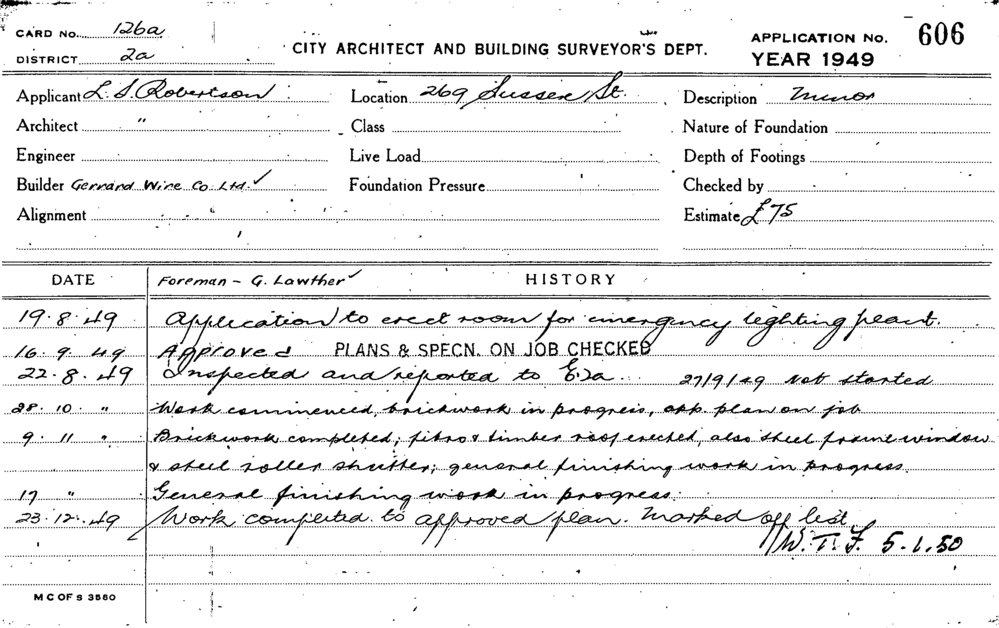 CARD No. 126a
DISTRICT 2a
CITY ARCHITECT AND BUILDING SURVEYOR'S DEPT.
APPLICATION No. 606
YEAR 1949
Applicant L. S. Robertson Location 269 Sussex St. Description Minor
Architect " Class Nature of Foundation
Engineer Live Load Depth of Footings
Builder Gerrard Wire Co. Ltd. ✓ Foundation Pressure Checked by
Alignment Estimate £75
DATE Foreman - G. Lawther ✓ HISTORY
19.8.49 Application to erect room for emergency lighting plant.
16.9.49 Approved PLANS & SPECN. ON JOB CHECKED
22.8.49 Inspected and reported to E2a 27/9/49 Not started
28.10. " Work commenced, brickwork in progress, app. plan on job
9.11 " Brickwork completed; fibro & timber roof erected, also steel frame window
& steel roller shutter; general finishing work in progress.
17 " General finishing work in progress.
23.12.49 Work completed to approved plan. Marked off list
W.T.F. 5.1.50
M C OF S 3580